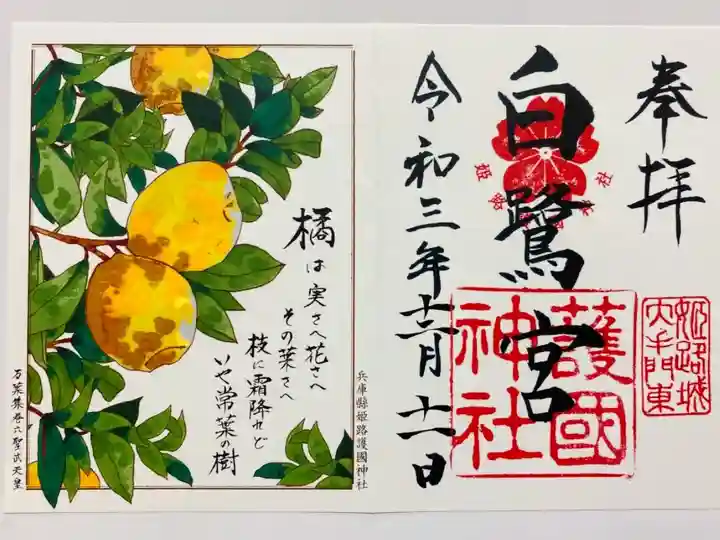 奉拝
姫路城
大手門東
白鷺宮
護國
神社
令和三年十二月十一日
橘は実さへ花さへ
その葉さへ
枝に霜降れど
いや常葉の樹
兵庫縣姫路護國神社
万葉集巻六聖武天皇